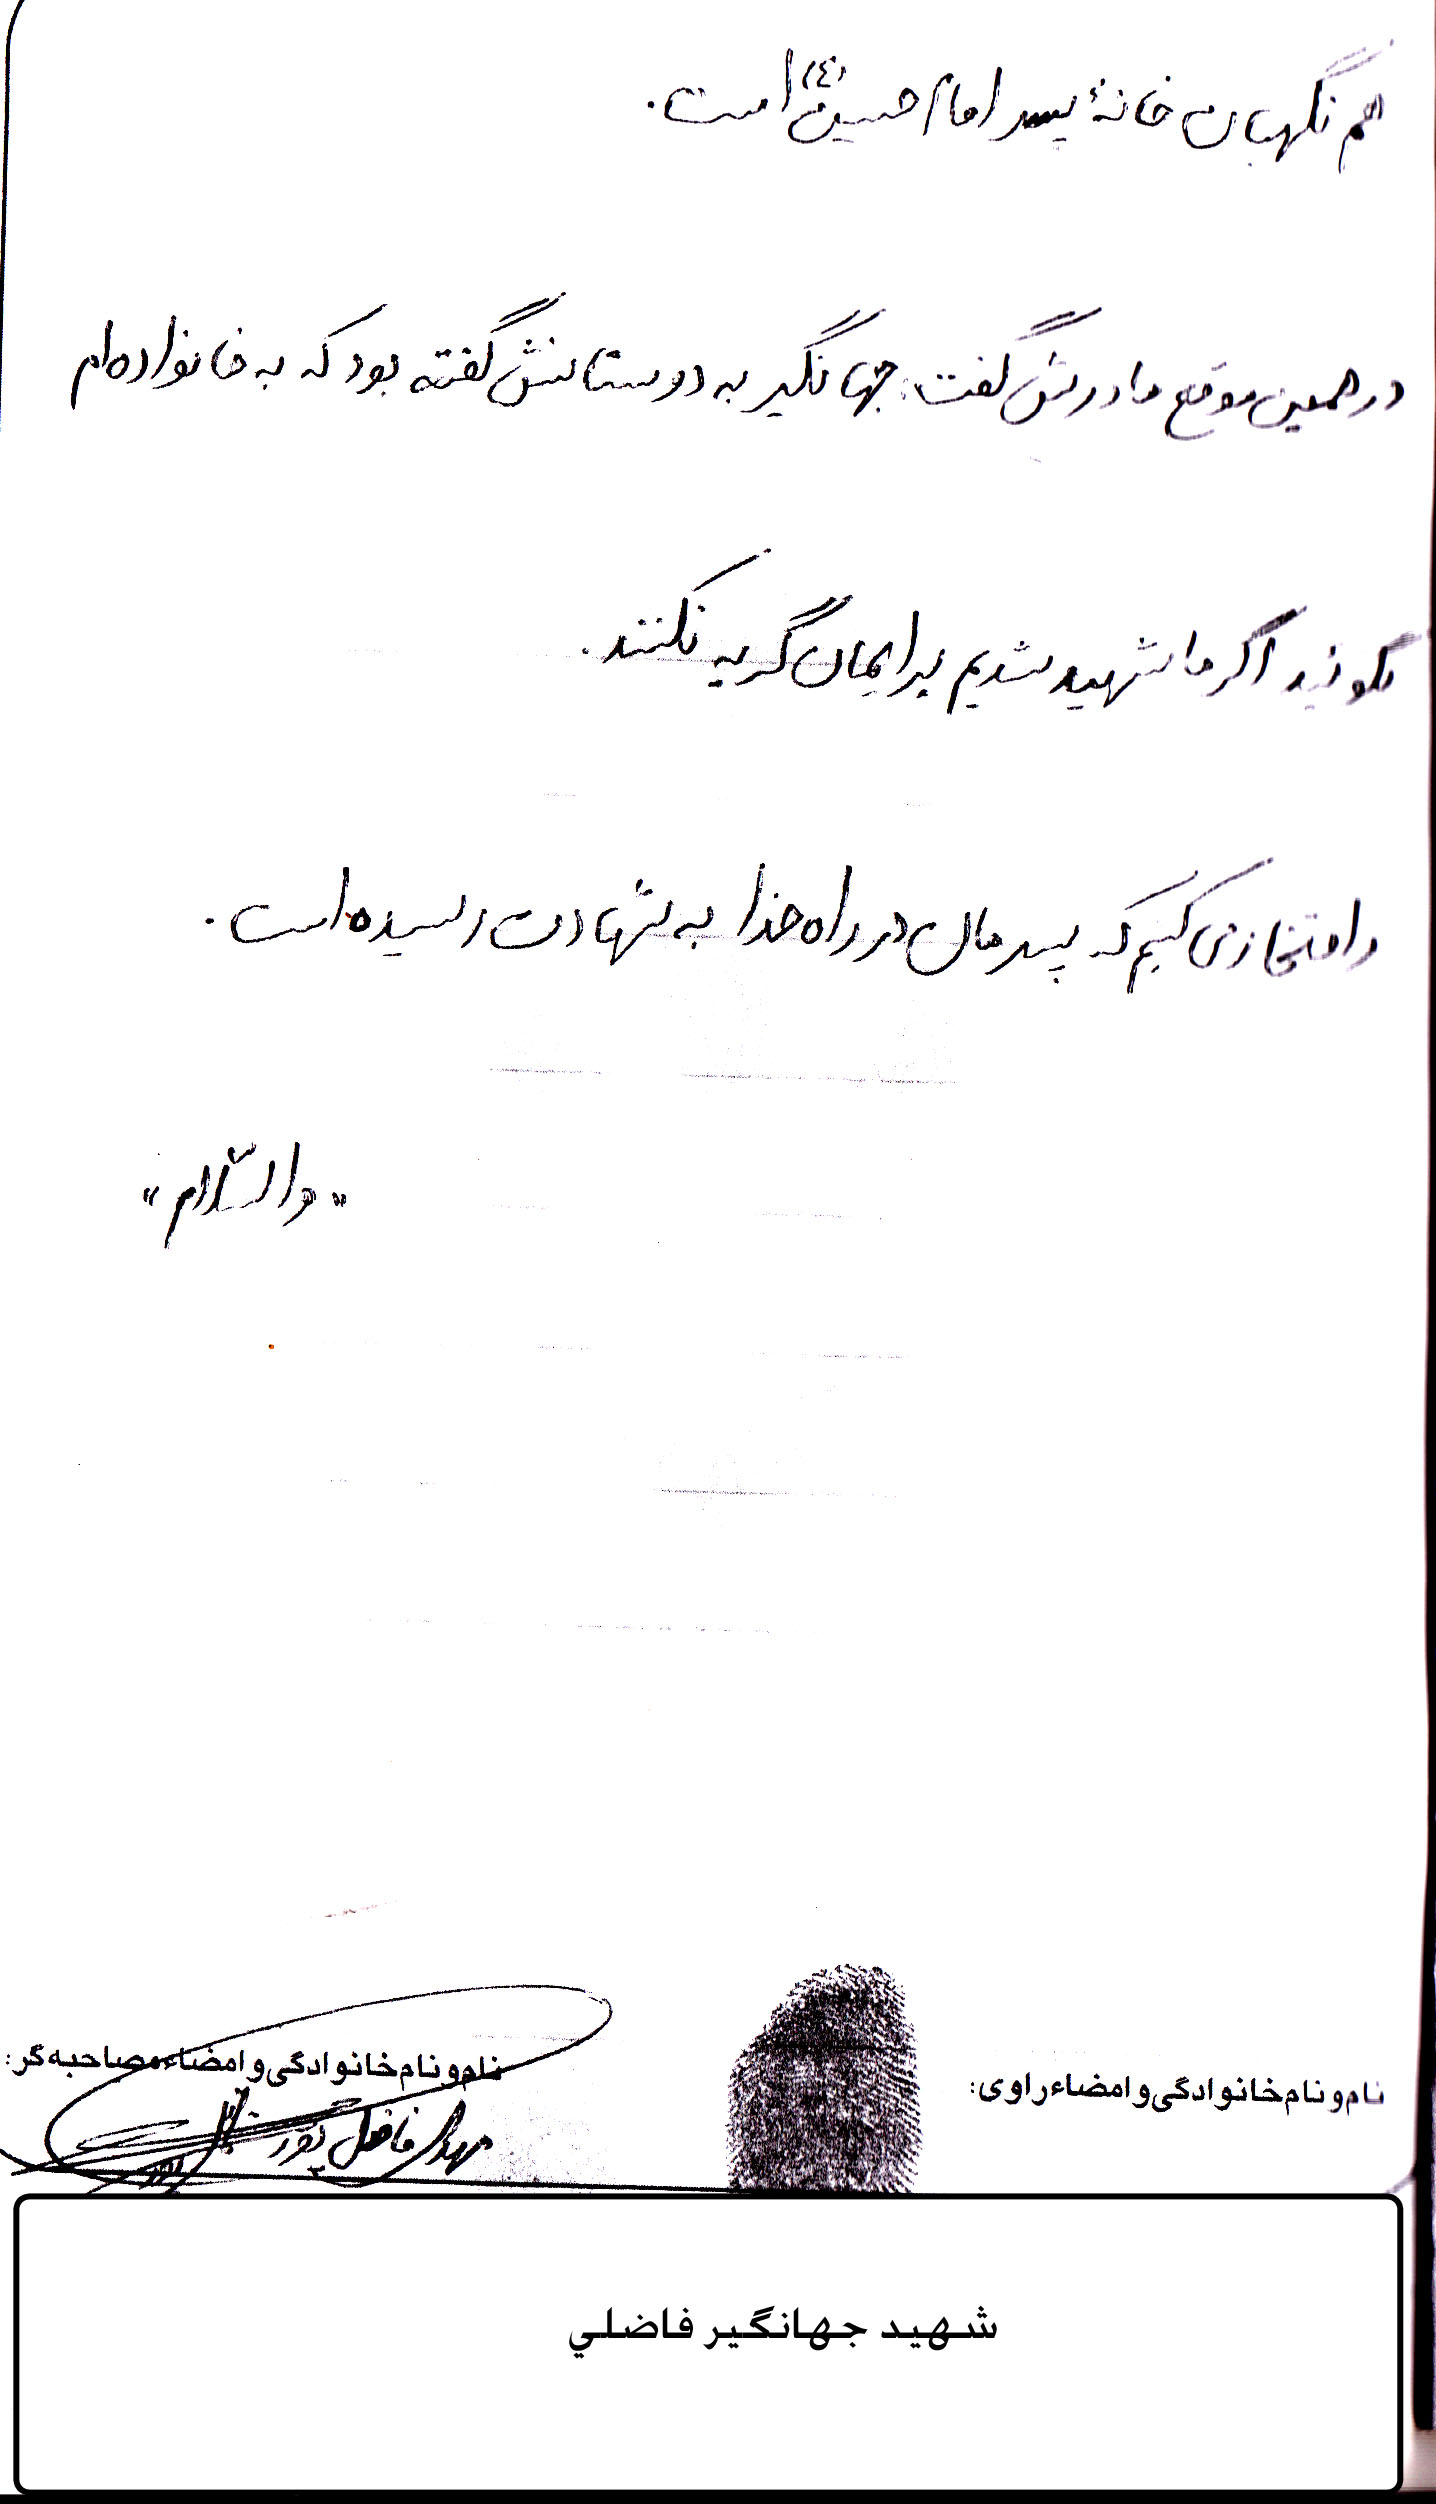 هم نگهبان خانهٔ پسر امام حسین (ع) است.
در همین موقع مادرش گفت: جهانگیر به دوستانش گفته بود که به خانواده‌ام
بگوئید اگر ما شهید شدیم برایمان گریه نکنند.
و افتخار می کنیم که پسرمان در راه خدا به شهادت رسیده است.
"والسّلام"
نام و نام خانوادگی و امضاء مصاحبه‌گر:
نام و نام خانوادگی و امضاء راوی:
فاضل پور
شهيد جهانگير فاضلي